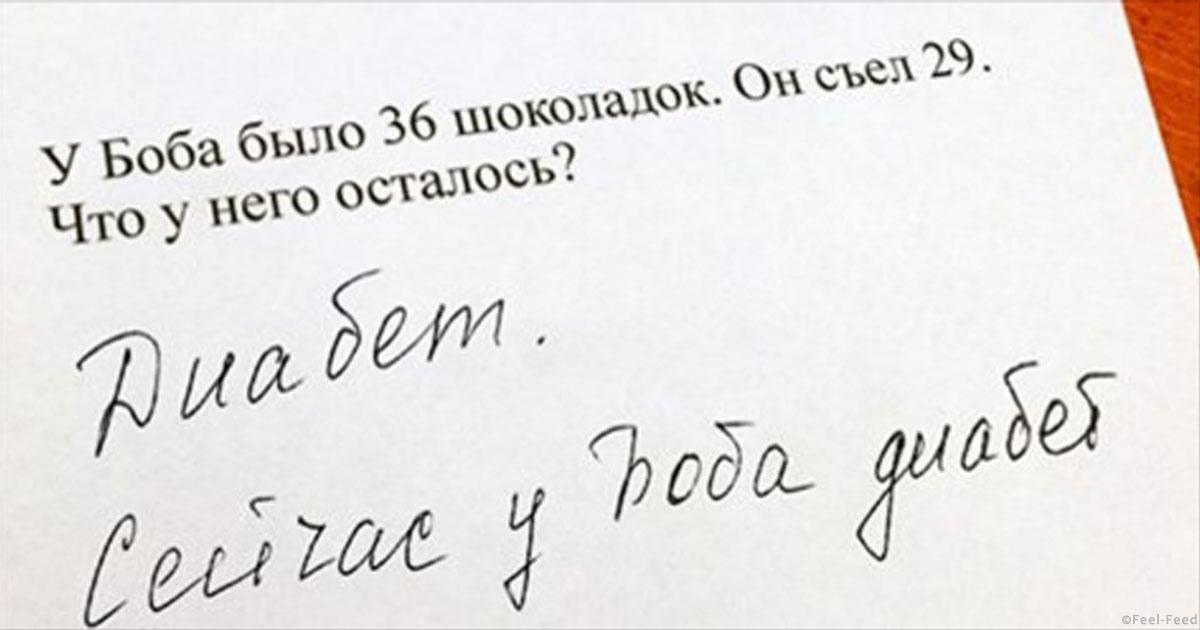 У Боба было 36 шоколадок. Он съел 29.
Что у него осталось?
Диабет.
Сейчас у Боба диабет
©Feel-Feed